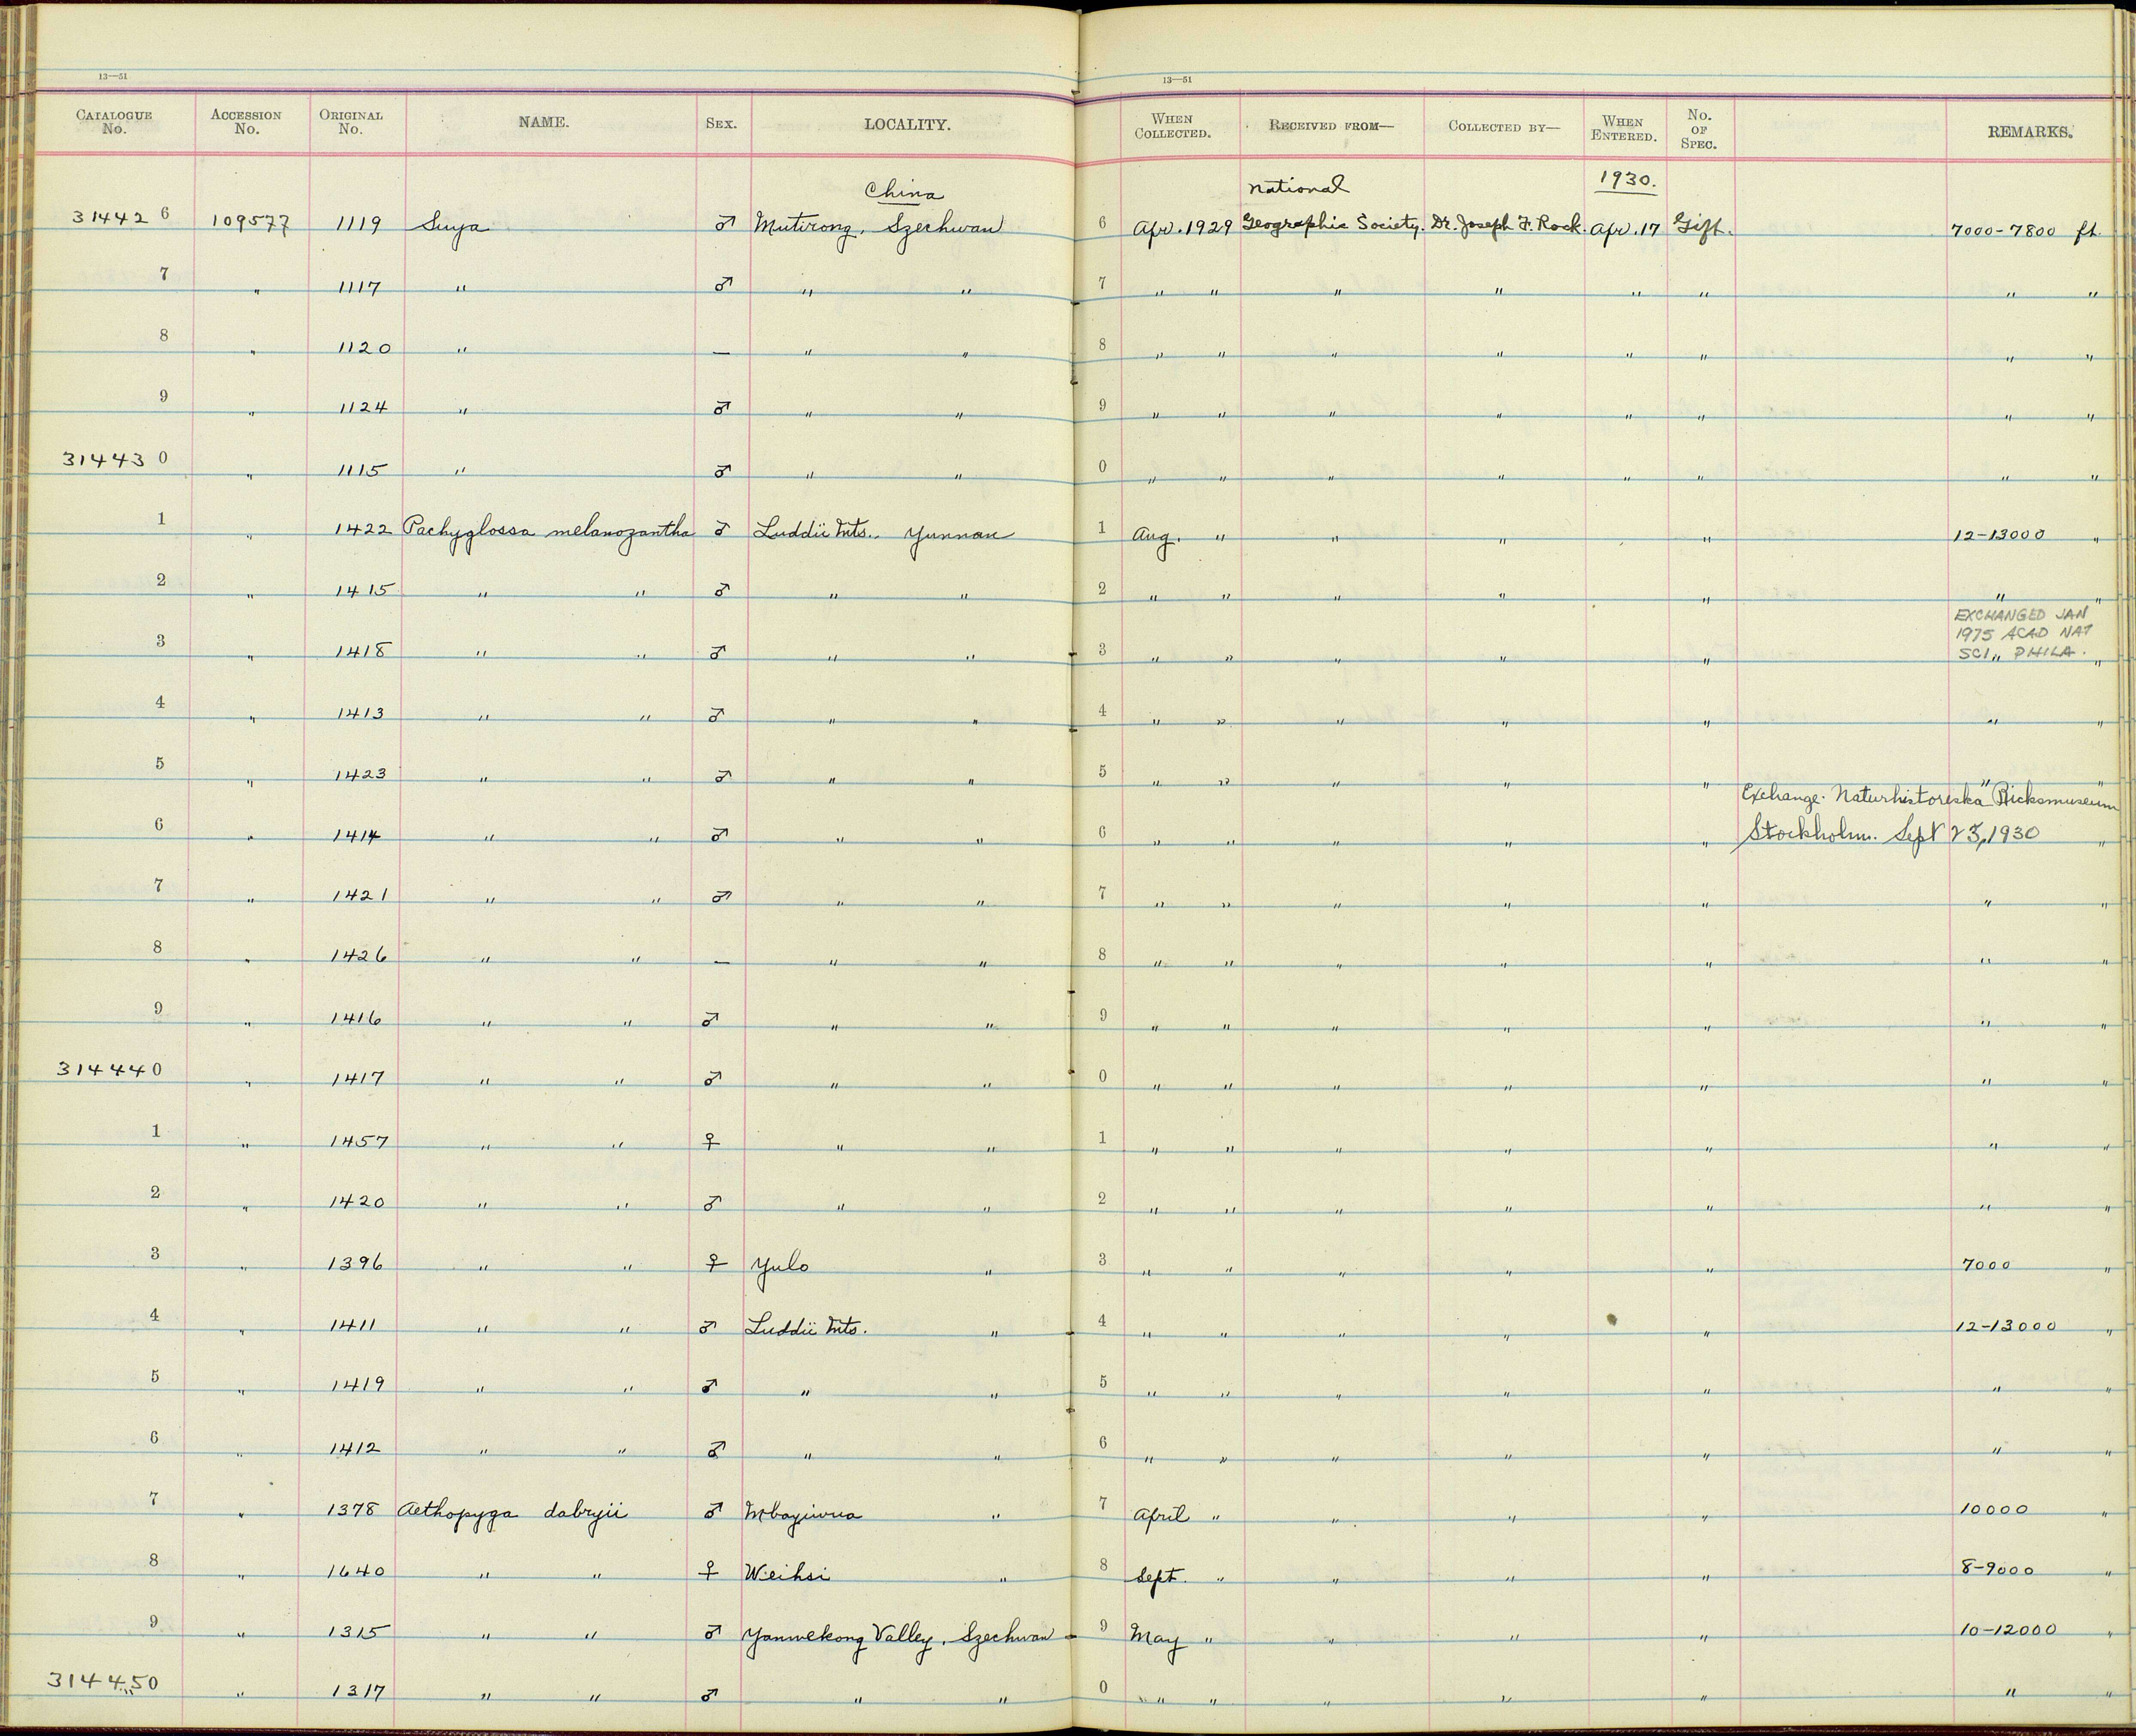 13—51 13—51
CATALOGUE No. ACCESSION No. ORIGINAL No. NAME. SEX. LOCALITY. WHEN COLLECTED. RECEIVED FROM— COLLECTED BY— WHEN ENTERED. No. OF SPEC. REMARKS.
China National 1930.
31442 6 109577 1119 Suya ♂ Mutirong, Szechwan 6 Apr. 1929 Geographic Society. Dr. Joseph F. Rock. Apr. 17 Gift. 7000-7800 ft.
7 " 1117 " ♂ " " 7 " " " " " " " "
8 " 1120 " — " " 8 " " " " " " " "
9 " 1124 " ♂ " " 9 " " " " " " " "
31443 0 " 1115 " ♂ " " 0 " " " " " " " "
1 " 1422 Pachyglossa melanozantha ♂ Luddü Mts., Yunnan 1 Aug. " " " " 12-13000 "
2 " 1415 " " ♂ " " 2 " " " " " " "
EXCHANGED JAN
1975 ACAD NAT
3 " 1418 " " ♂ " " 3 " " " " " SCI " PHILA. "
4 " 1413 " " ♂ " " 4 " " " " " " "
5 " 1423 " " ♂ " " 5 " " " " " " "
Exchange. Naturhistoriska Ricksmuseum
6 " 1414 " " ♂ " " 6 " " " " " Stockholm. Sept 23, 1930 "
7 " 1421 " " ♂ " " 7 " " " " " " "
8 " 1426 " " — " " 8 " " " " " " "
9 " 1416 " " ♂ " " 9 " " " " " " "
31444 0 " 1417 " " ♂ " " 0 " " " " " " "
1 " 1457 " " ♀ " " 1 " " " " " " "
2 " 1420 " " ♂ " " 2 " " " " " " "
3 " 1396 " " ♀ Yulo " 3 " " " " " 7000 "
4 " 1411 " " ♂ Luddü Mts. " 4 " " " " " 12-13000 "
5 " 1419 " " ♂ " " 5 " " " " " " "
6 " 1412 " " ♂ " " 6 " " " " " " "
7 " 1378 Aethopyga dabryii ♂ " 7 April " " " " 10000 "
8 " 1640 " " ♀ Weihsi " 8 Sept. " " " " 8-9000 "
9 " 1315 " " ♂ Yanwekong Valley, Szechwan 9 May " " " " 10-12000 "
31445 0 " 1317 " " ♂ " " 0 " " " " " " "